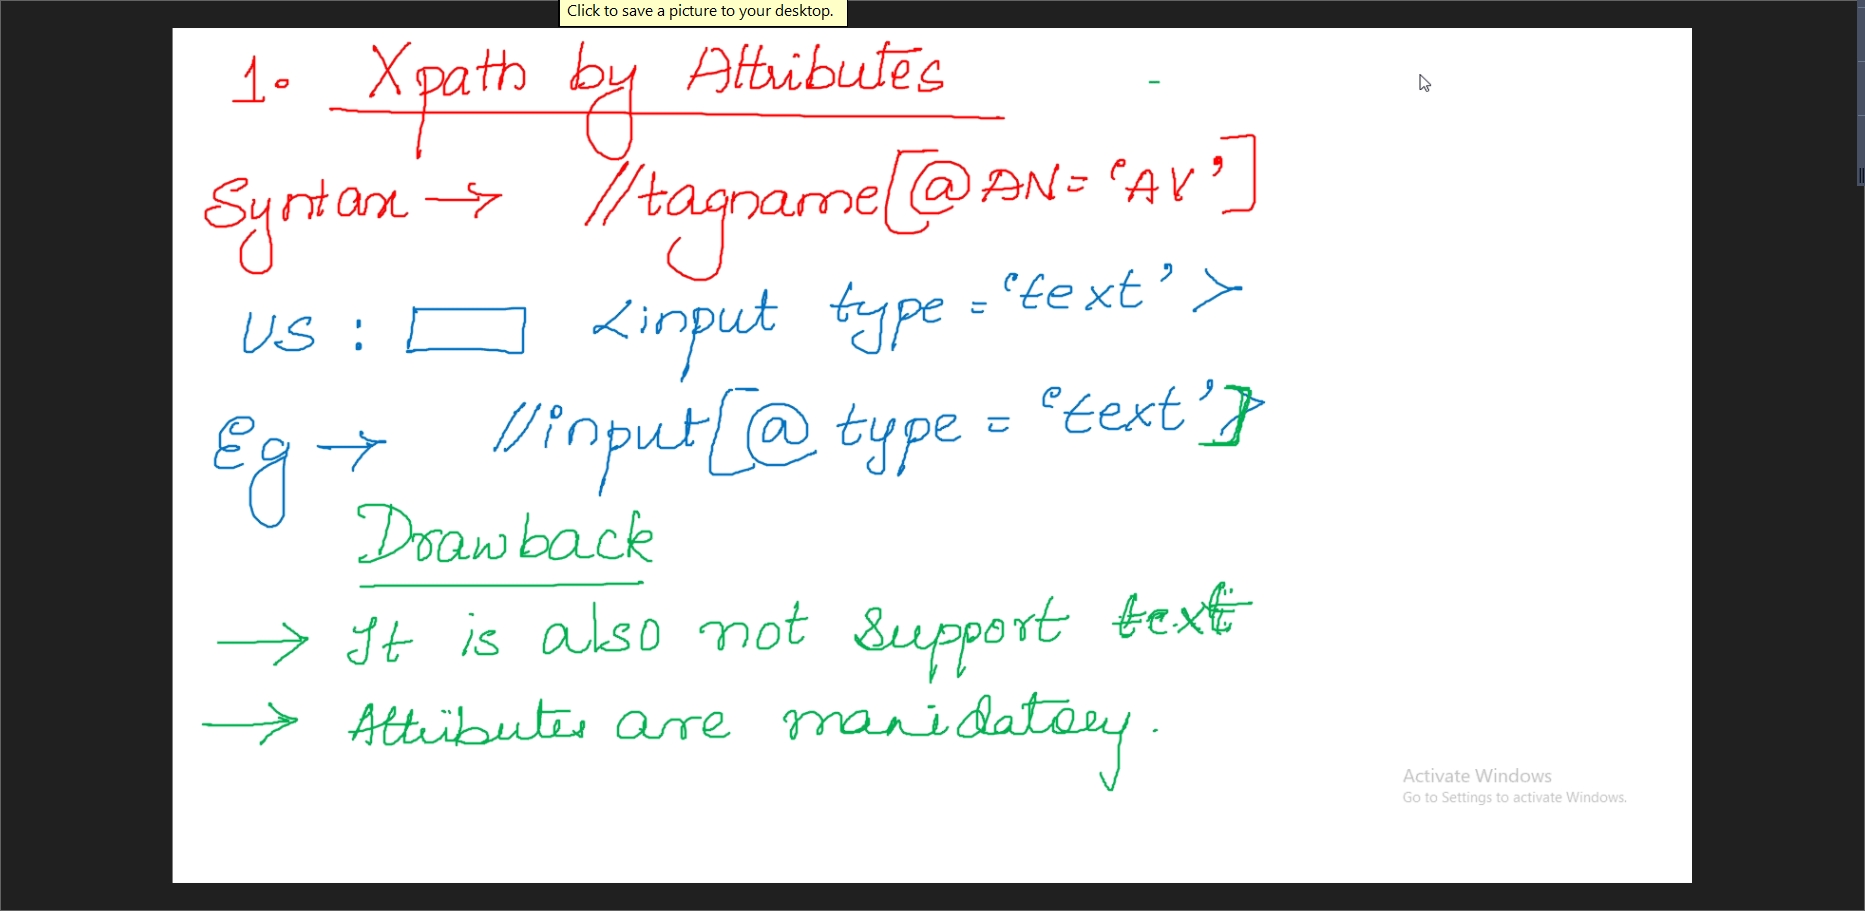 Click to save a picture to your desktop.
1. Xpath by Attributes
Syntax → //tagname[@AN='AV']
US : <input type='text'>
Eg → //input[@type='text']
Drawback
→ It is also not support text
→ Attributes are manidatory.
Activate Windows
Go to Settings to activate Windows.